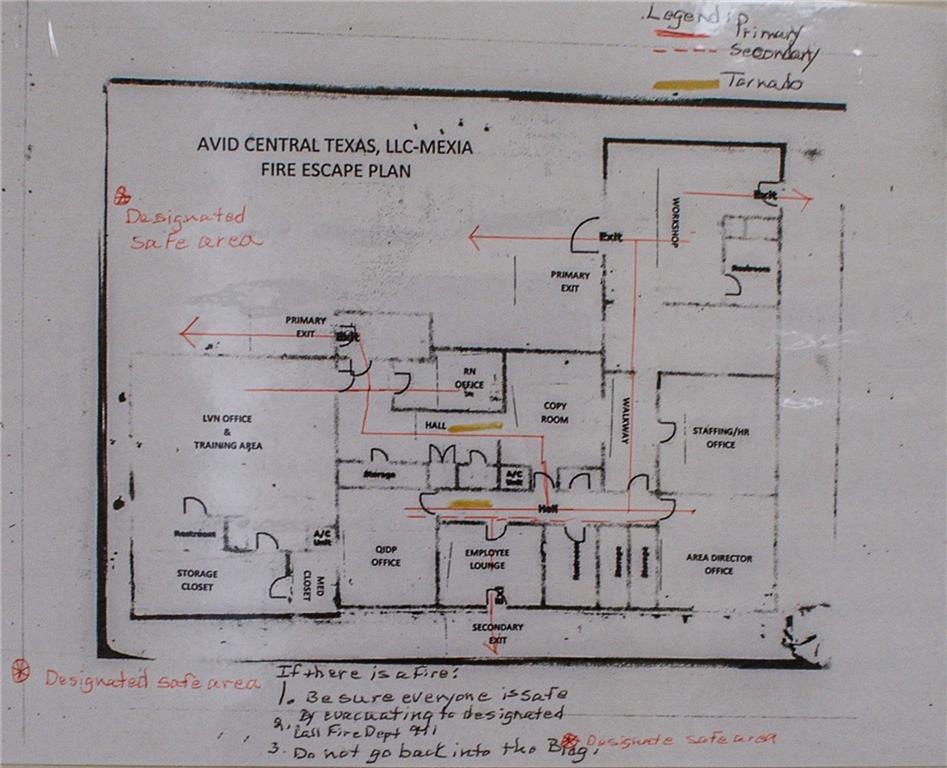 Legend:
Primary
Secondary
Tornado
AVID CENTRAL TEXAS, LLC-MEXIA
FIRE ESCAPE PLAN
Designated
safe area
Exit
Exit
WORKSHOP
Restroom
PRIMARY
EXIT
PRIMARY
EXIT
Exit
RN
OFFICE
COPY
ROOM
WALKWAY
LVN OFFICE
&
TRAINING AREA
HALL
STAFFING/HR
OFFICE
Storage
A/C
Unit
Hall
Restroom
A/C
Unit
QIDP
OFFICE
EMPLOYEE
LOUNGE
Restroom
Storage
Storage
AREA DIRECTOR
OFFICE
STORAGE
CLOSET
MED
CLOSET
SECONDARY
EXIT
Designated safe area
If there is a fire:
1. Be sure everyone is safe
By evacuating to designated
2. Call Fire Dept 911
3. Do not go back into the Bldg.
Designate safe area